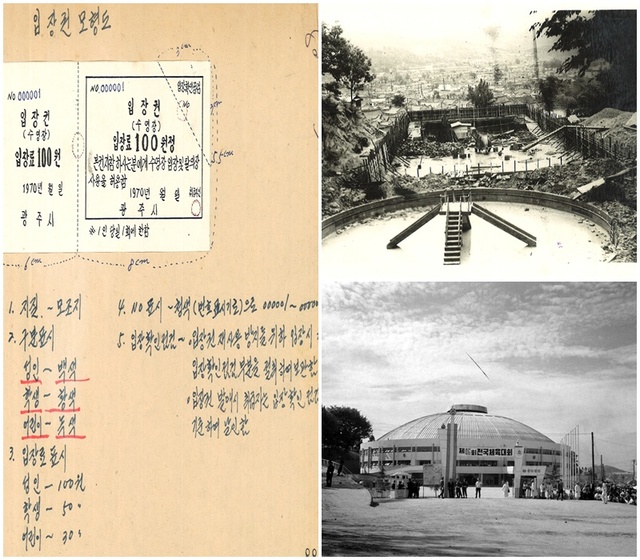 입장권 모형도
NO 000001
입 장 권
(수영장)
입장료 100원
1970년 월 일
광 주 시
NO 000001
입 장 권
(수영장)
입장료 100원정
본권지참하시는분에게 수영장 입장 및 탈의장
사용을 허용함
1970년 월
광 주 시
※ 1인 당일 1회에 한함
3cm
5.5cm
6cm
8cm
1. 지질 ~ 모조지
2. 구분표시
성인 ~ 백색
학생 ~ 황색
어린이 ~ 녹색
3. 입장료 표시
성인 ~ 100원
학생 ~ 50〃
어린이 ~ 30〃
4. NO 표시 ~ 청색(번호표시기로)으로 00001~
5. 입장확인전권 ~ 입장권 재사용 방지를 위하 입장시
입장확인전권 부분을 절취하여 보관함
입장권 발매시
기전하여 날인함
전국체육대회